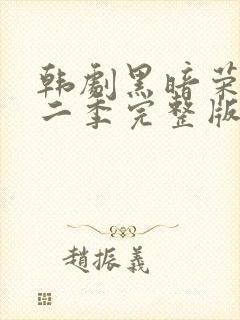 韩劇黑暗荣
二季完整版
趙振義